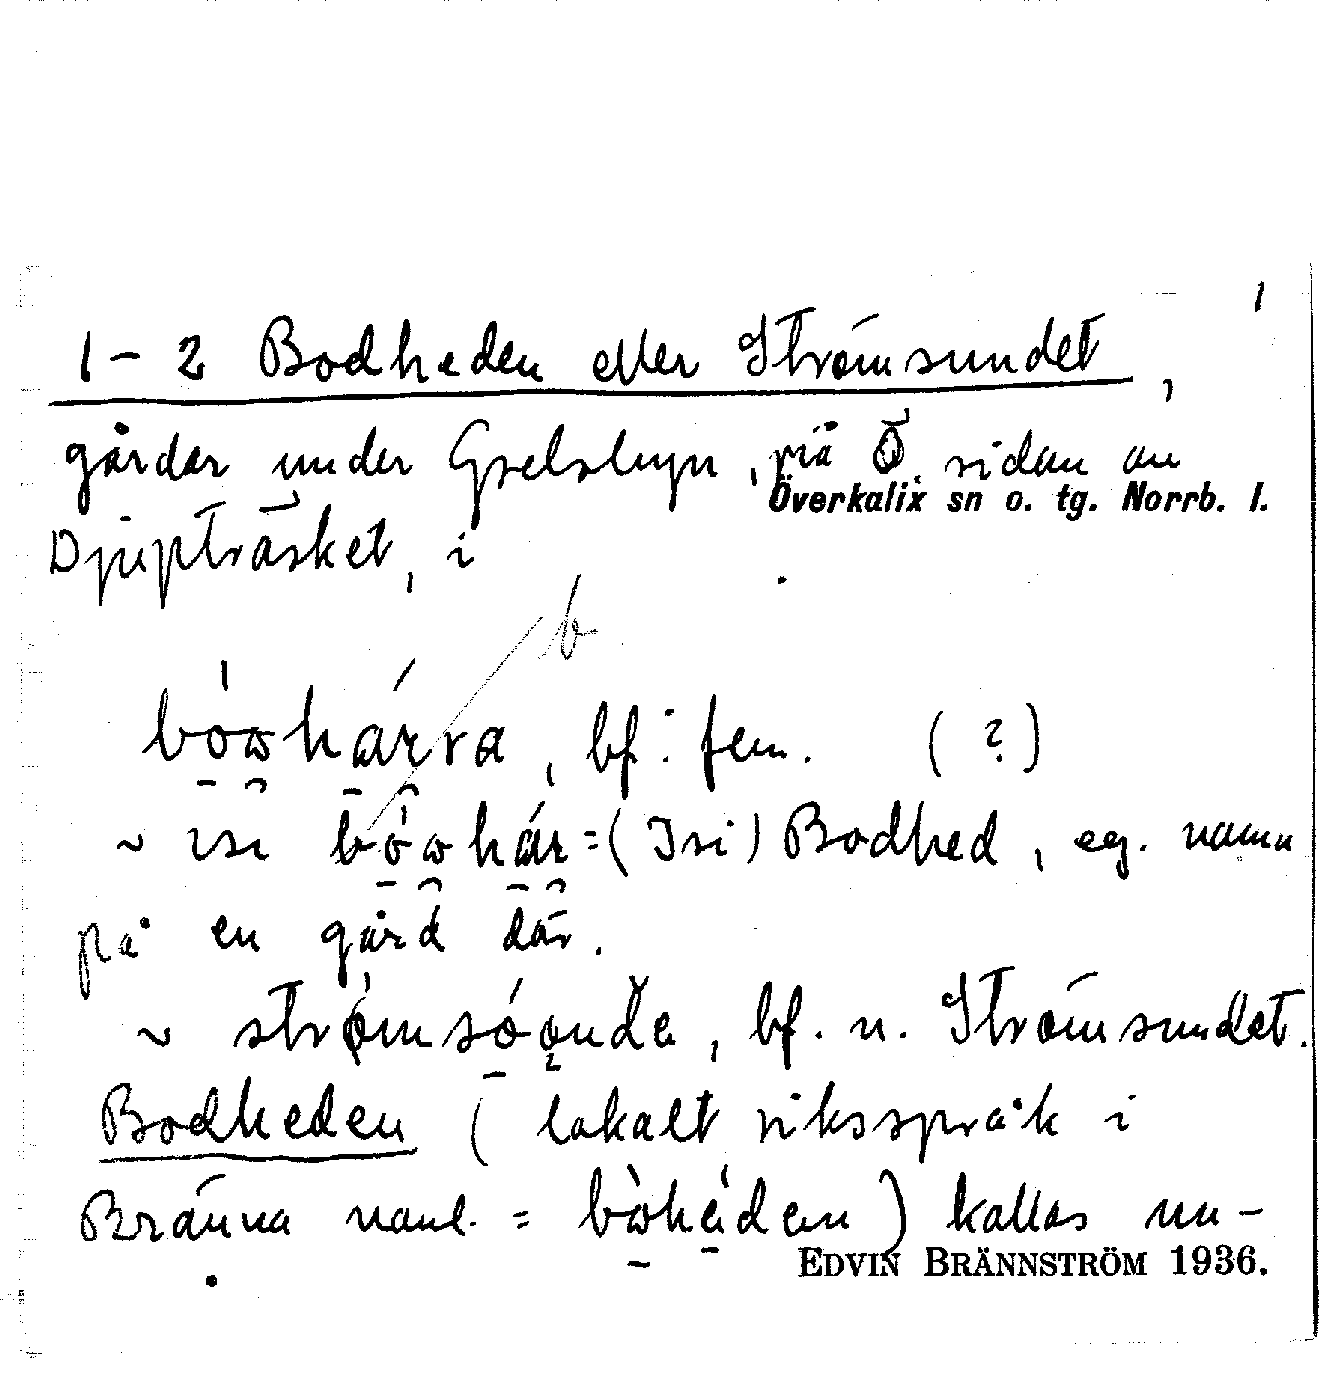 1
1-2 Bodheden eller Strömsundet,
gårdar under Gyelsbyn, på Ö. sidan av
Överkalix sn o. tg. Norrb. l.
Djupträsket, i
b
bówhárva, bf. fem. (?)
~ ısı bówhár = (Isi) Bodhed, eg. namn
på en gård där.
~ strømsóonde, bf. n. Strömsundet.
Bodheden (lokalt riksspråk i
Bränna vanl. = bòhéden) kallas nu-
EDVIN BRÄNNSTRÖM 1936.